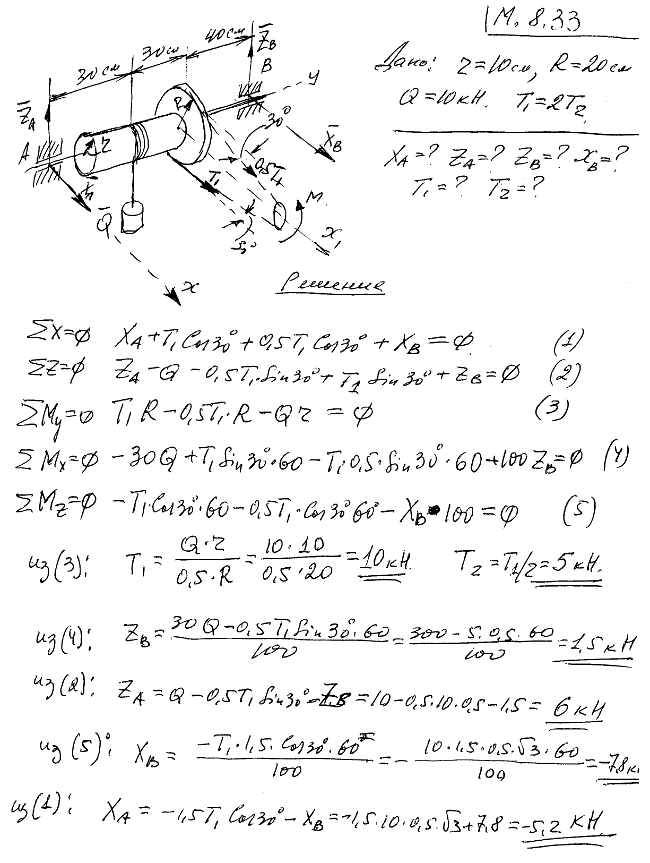 М. 8.33
30см 30см 40см
Z̄_B
B
y
Z̄_A
R
30°
A
r
X̄_B
T̄₁
0,5T̄₁
M
Q̄
30°
x₁
x
Дано: r=10см, R=20см
Q=10кН. T₁=2T₂
X_A=? Z_A=? Z_B=? X_B=?
T₁=? T₂=?
Решение
ΣX=0 X_A+T₁Cos30°+0,5T₁Cos30°+X_B=0 (1)
ΣZ=0 Z_A−Q−0,5T₁·Sin30°+T₁Sin30°+Z_B=0 (2)
ΣM_y=0 T₁R−0,5T₁·R−Qr=0 (3)
ΣM_x=0 −30Q+T₁Sin30°·60−T₁·0,5·Sin30°·60+100Z_B=0 (4)
ΣM_z=0 −T₁Cos30°·60−0,5T₁·Cos30°60−X_B·100=0 (5)
из(3): T₁=Q·r/0,5·R=10·10/0,5·20=10кН. T₂=T₁/2=5кН.
из(4): Z_B=30Q−0,5T₁Sin30°·60/100=300−5·0,5·60/100=1,5кН
из(2): Z_A=Q−0,5T₁Sin30°−Z_B=10−0,5·10·0,5−1,5=6кН
из(5): X_B=−T₁·1,5·Cos30°·60/100=−10·1,5·0,5·√3·60/100=−7,8к
из(1): X_A=−1,5T₁Cos30°−X_B=−1,5·10·0,5·√3+7,8=−5,2кН